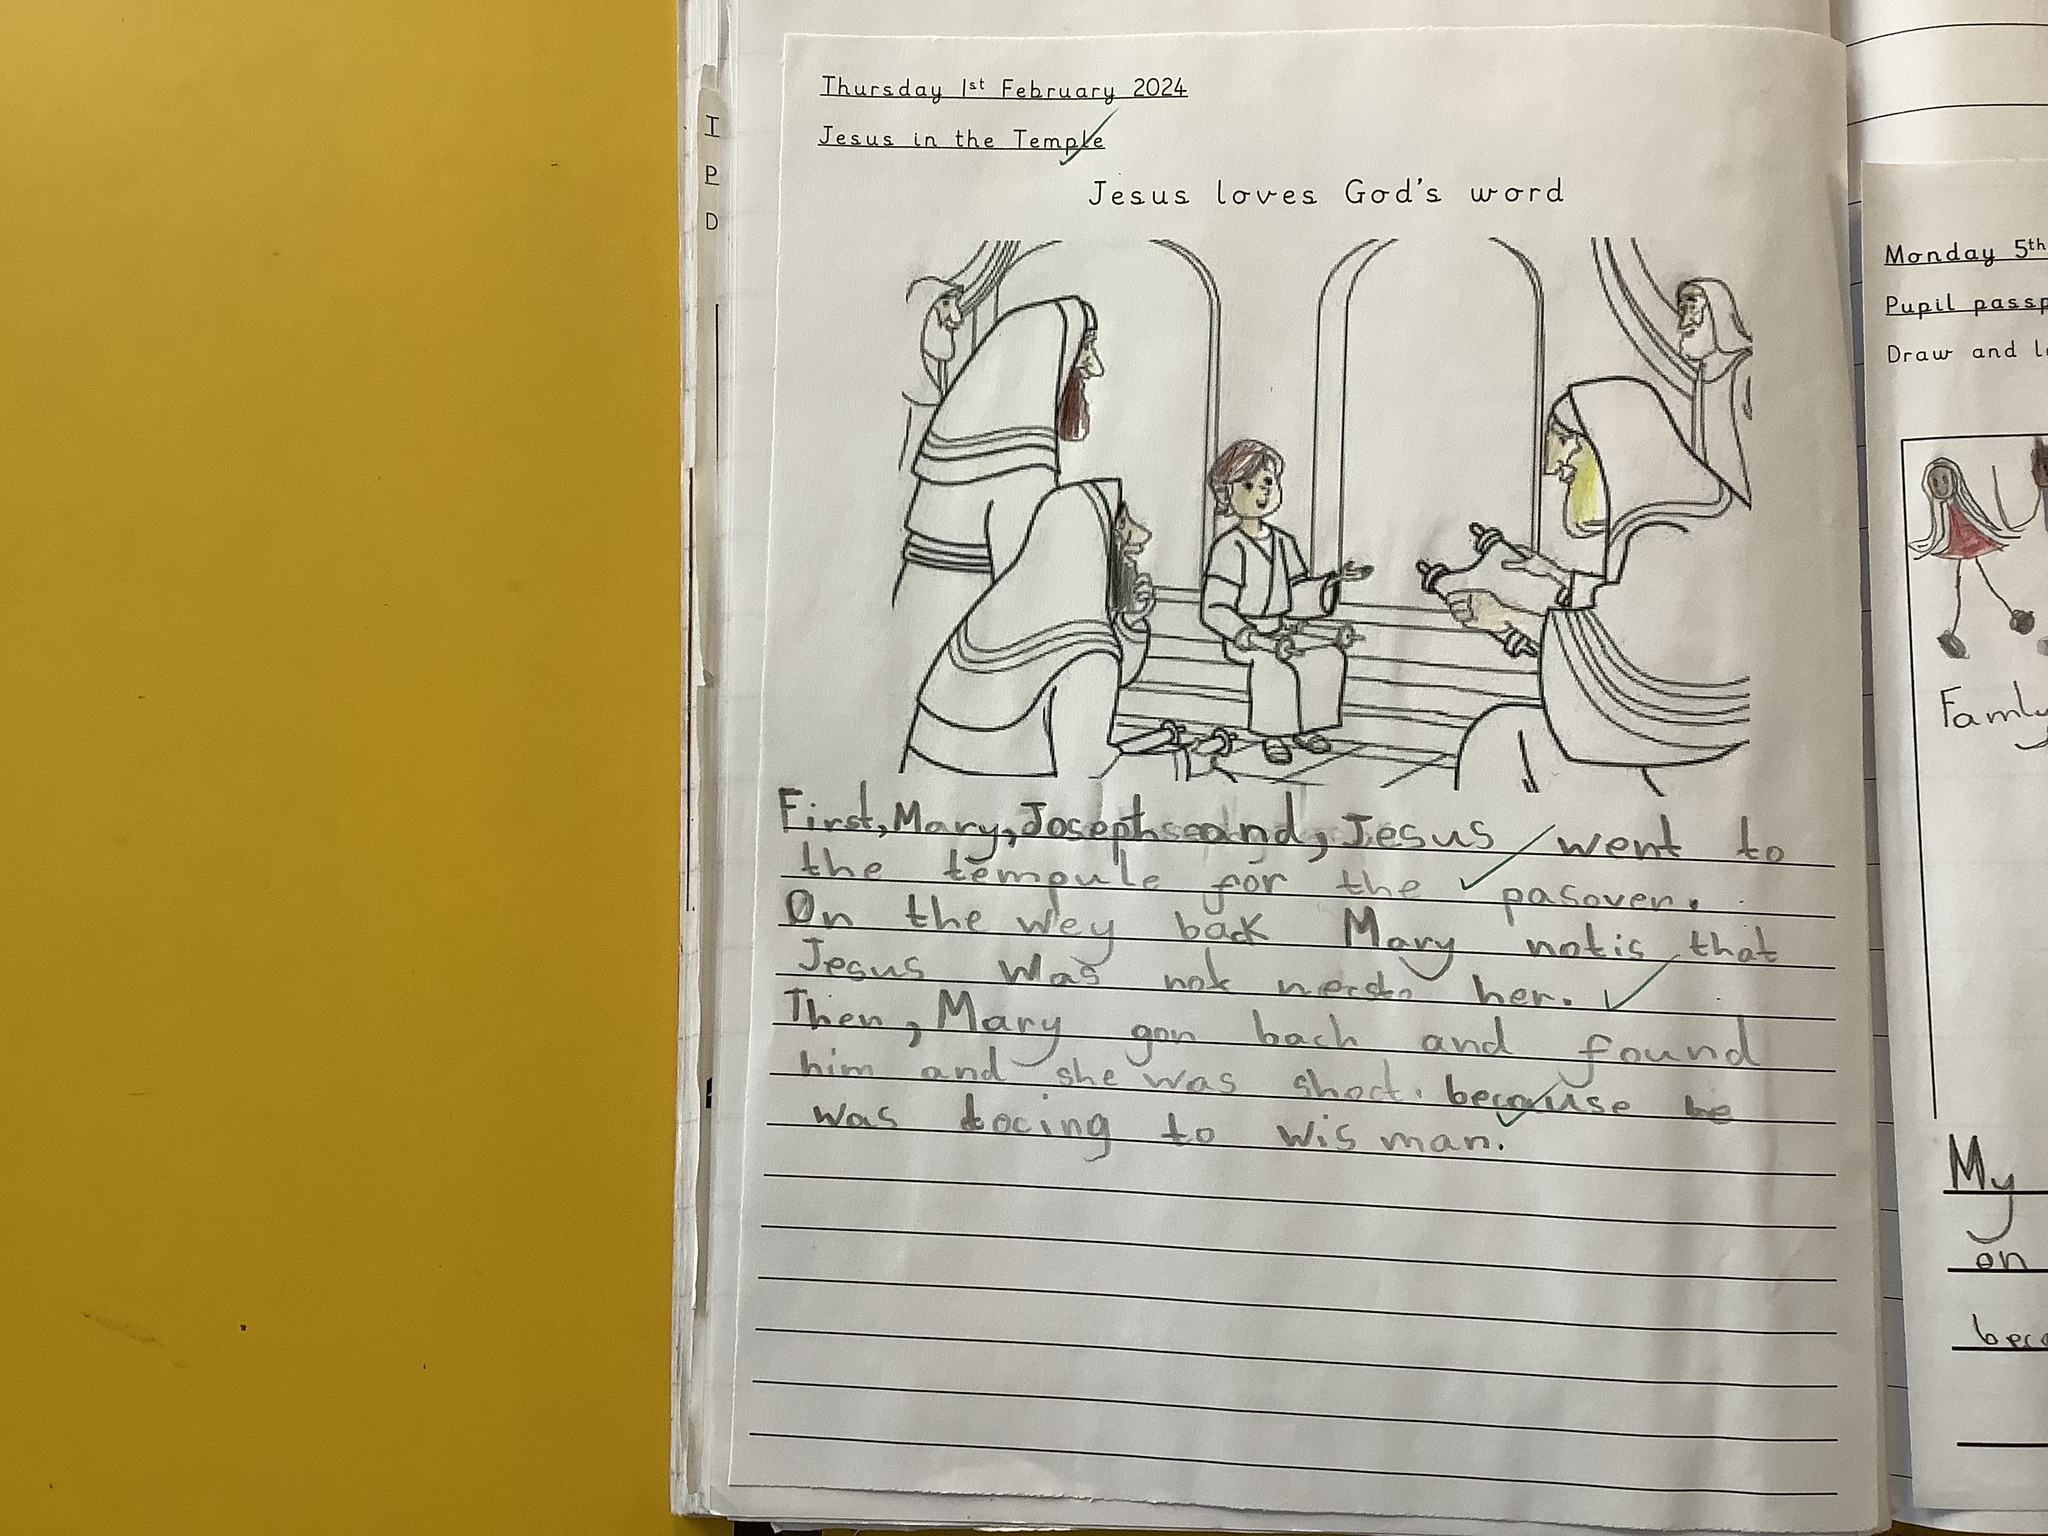 Thursday 1st February 2024
Jesus in the Temple
Jesus loves God's word
First, Mary, Joseph and, Jesus went to
the tempule for the pasover.
On the wey back Mary notis that
Jesus was not her.
Then, Mary gon bach and found
him and she was shoct. because he
was tocing to wis man.
I
P
D
Monday 5th
Pupil passp
Draw and l
Famly
My
on
beca